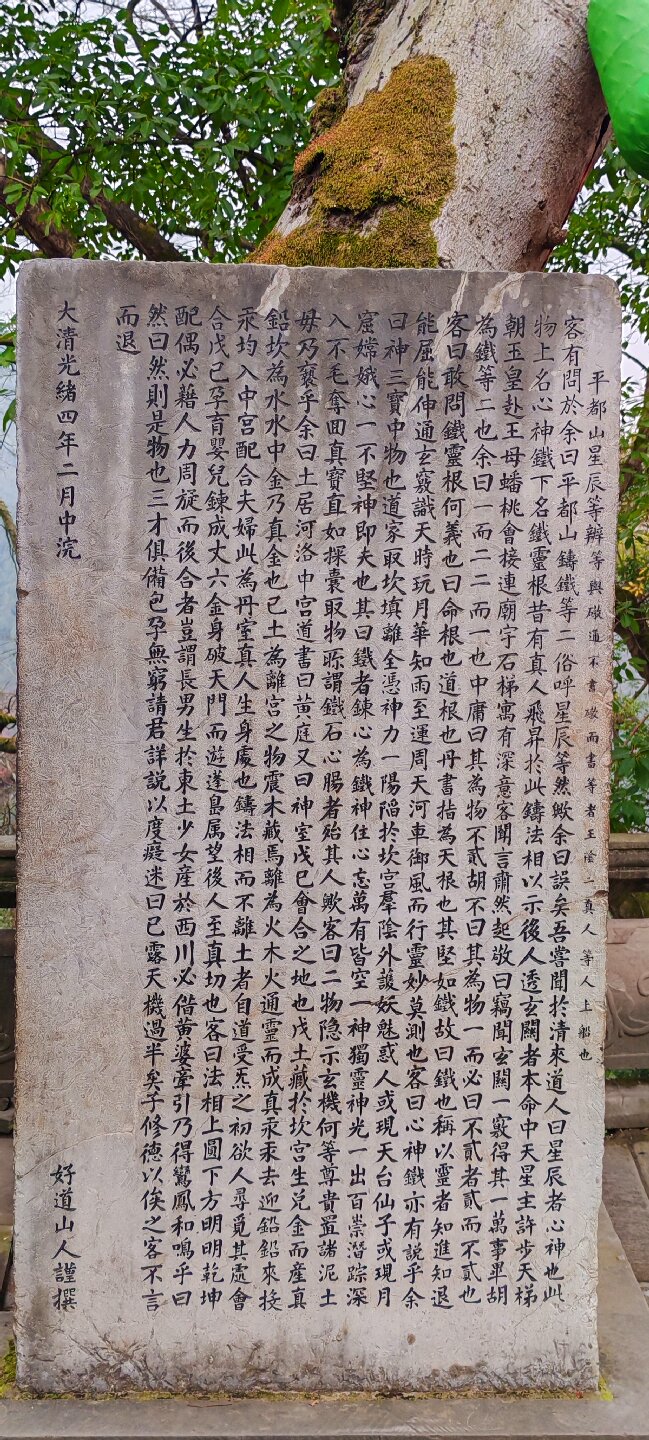 平都山星辰等辨等與礅通不書礅而書等者王陰二真人等人上昇也
客有問於余曰平都山鑄鐵等二俗呼星辰等然歟余曰誤矣吾嘗聞於清來道人曰星辰者心神也此
物上名心神鐵下名鐵靈根昔有真人飛昇於此鑄法相以示後人透玄關者本命中天星主許步天梯
朝玉皇赴王母蟠桃會接連廟宇石梯寓有深意客聞言肅然起敬曰竊聞玄關一竅得其一萬事畢胡
為鐵等二也余曰一而二二而一也中庸曰其為物不貳胡不曰其為物一而必曰不貳者貳而不貳也
客曰敢問鐵靈根何義也曰命根也道根也丹書指為天根也其堅如鐵故曰鐵也稱以靈者知進知退
能屈能伸通玄竅識天時玩月華知雨至運周天河車御風而行靈妙莫測也客曰心神鐵亦有說乎余
曰神三寶中物也道家取坎填離全憑神力一陽陷於坎宮羣陰外護妖魅惑人或現天台仙子或現月
窟嫦娥心一不堅神即夫也其曰鐵者鍊心為鐵神住心忘萬有皆空一神獨靈神光一出百祟潛踪深
入不毛奪回真寶直如探囊取物所謂鐵石心腸者殆其人歟客曰二物隐示玄機何等尊貴置諸泥土
毋乃褻乎余曰土居河洛中宮道書曰黃庭又曰神室戊己會合之地也戊土藏於坎宮生兌金而產真
鉛坎為水水中金乃真金也己土為離宮之物震木藏焉離為火木火通靈而成真汞汞去迎鉛鉛來投
汞均入中宮配合夫婦此為丹室真人生身處也鑄法相而不離土者自道受炁之初欲人尋覓其處會
合戊己孕育嬰兒鍊成丈六金身破天門而遊蓬島属望後人至真切也客曰法相上圓下方明明乾坤
配偶必藉人力周旋而後合者豈謂長男生於東土少女産於西川必偕黃婆牽引乃得鸞鳳和鳴乎曰
然曰然則是物也三才俱備包孕無窮請君詳說以度癡迷曰已露天機過半矣子修德以俟之客不言
而退
大清光緒四年二月中浣
好道山人謹撰